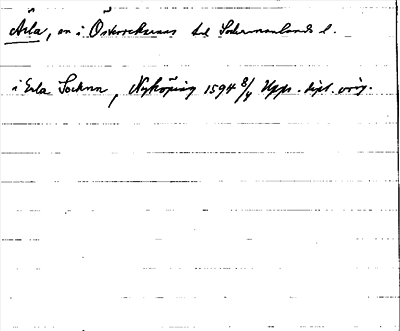 Ärla, sn i Österrekarne hd Södermanlands l.
i Erla Socknn, Nyköping 1594 8/4 Upps. dipl. orig.